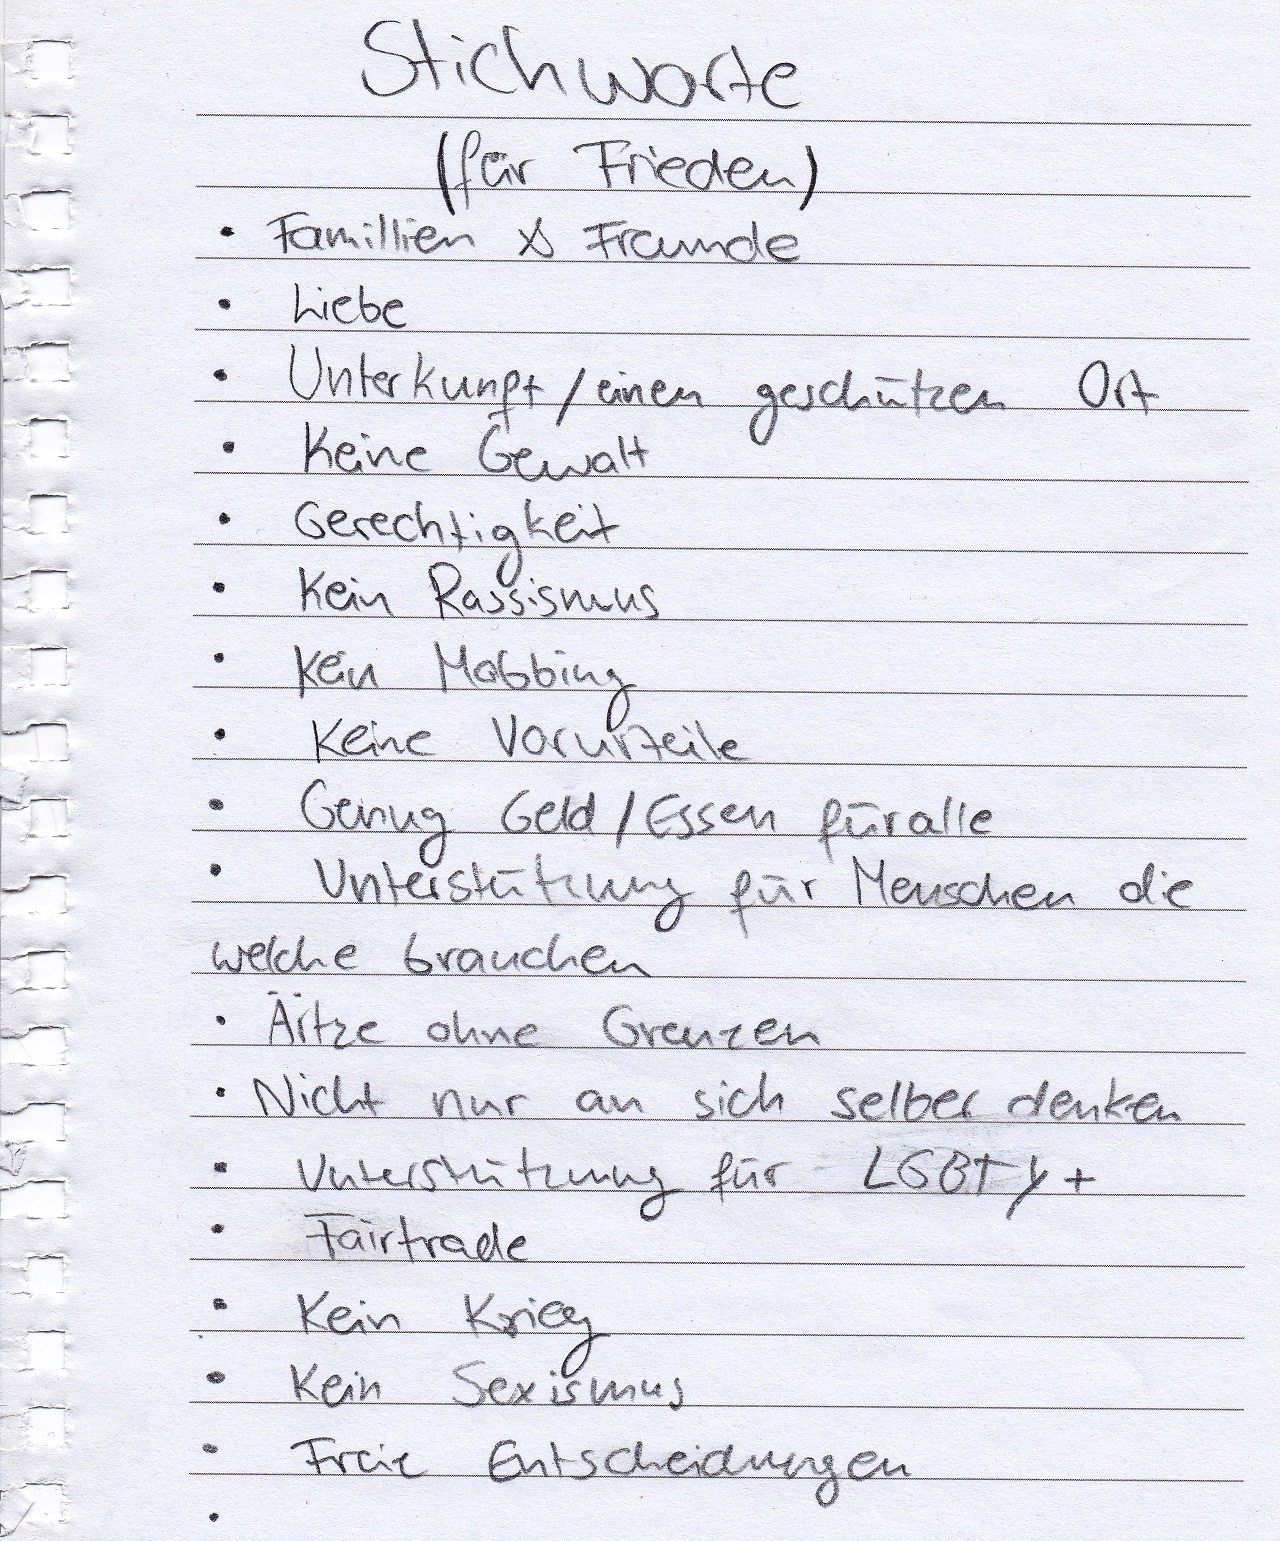 Stichworte
(für Frieden)
• Famillien & Freunde
• Liebe
• Unterkunft/einen geschützen Ort
• Keine Gewalt
• Gerechtigkeit
• Kein Rassismus
• Kein Mobbing
• Keine Vorurteile
• Genug Geld/Essen für alle
• Unterstützung für Menschen die
welche brauchen
• Ärtze ohne Grenzen
• Nicht nur an sich selber denken
• Unterstützung für LGBTY+
• Fairtrade
• Kein Krieg
• Kein Sexismus
• Freie Entscheidungen
•